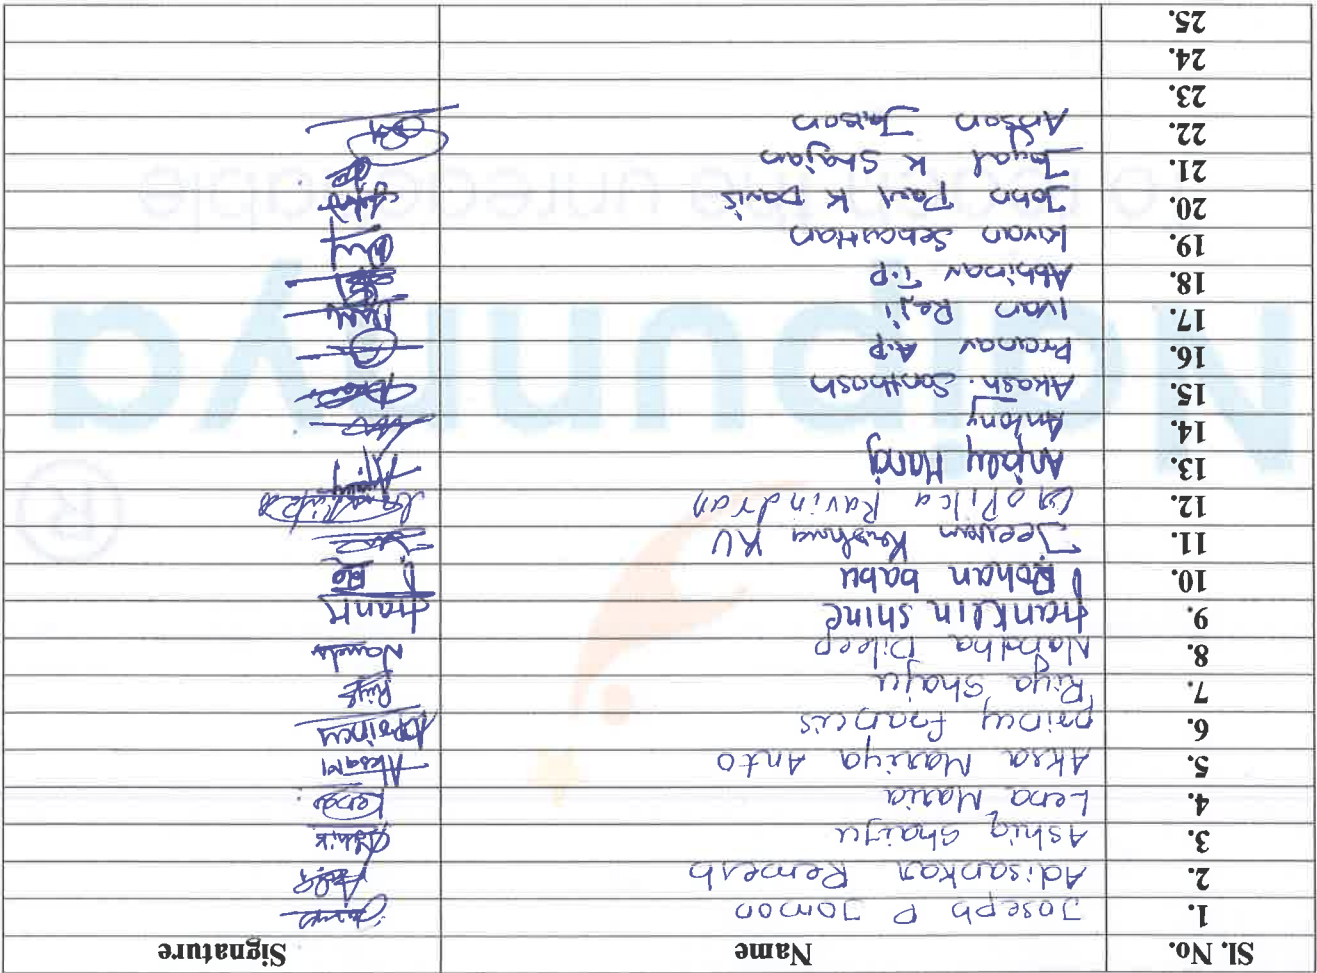 Sl. No. Name Signature
1. Joseph P Jomon
2. Adisankar Remesh
3. Ashiq Shaiju Ashik
4. Lena Maria Lena
5. Aksa Mariya Anto Aksa M
6. princy francis princy
7. Riya Shaju Riya
8. Nandha Dileep Nandu
9. franklin shine frank
10. Rohan babu
11. Jeevan Krishna KV
12. Gopika Ravindran
13. Anjaly Manoj
14. Antony
15. Akash. Santhosh
16. Pranav A.P
17. Ivan Reji
18. Abhinav T.P
19. Kiran Sebastian
20. John Paul K Davis
21. K Shajan
22. Anson Jaison
23.
24.
25.
Naipunnya
®